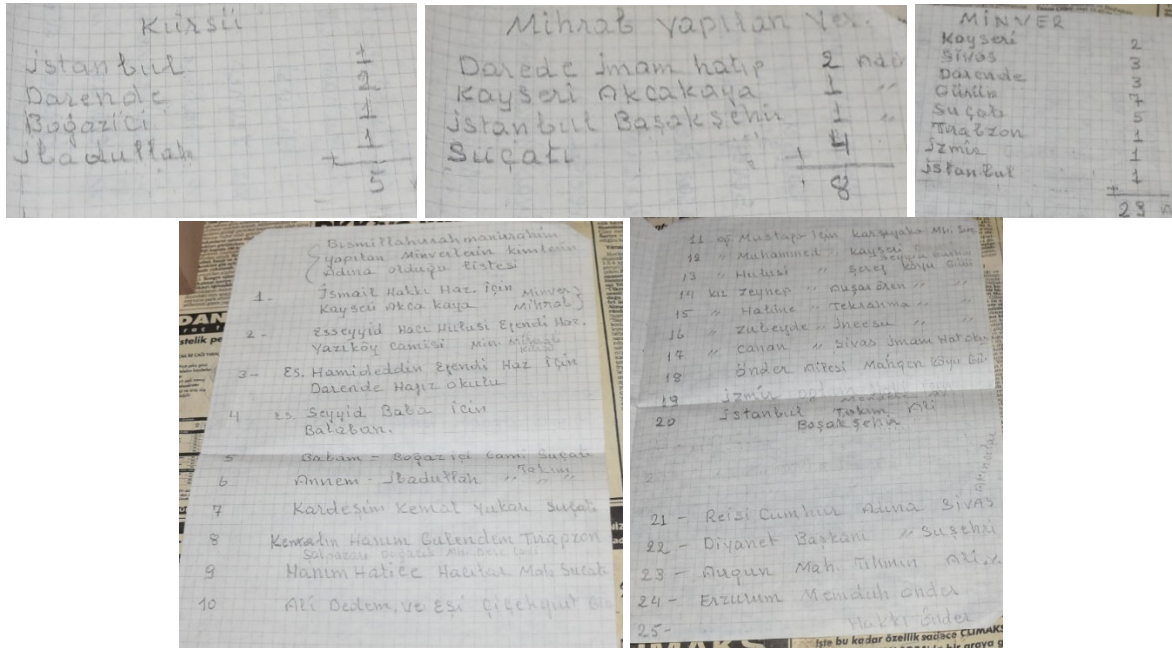 Kürsü
İstanbul 1
Darende 2
Boğaziçi 1
İbadullah 1
+
5
Mihrab Yapılan Yer.
Darede İmam hatip 2
Kayseri Akcakaya 1 "
İstanbul Başakşehir 1 "
Suçatı 4
+
8
MİNVER
Kayseri 2
Sivas 3
Darende 3
Gürün 7
Suçatı 5
Trabzon 1
İzmir 1
İstanbul 1
+
23
Bismillahurahmanurahim
yapılan Minverlerin kimlerin
adına olduğu listesi
1- İsmail Hakkı Haz için Minver
Kayseri Akca kaya Mihrab
2- Esseyyid Hacı Hulusi Efendi Haz.
Yazıköy Camisi Min. Mihrab
3- Es. Hamideddin Efendi Haz için
Darende Hafız okulu
4 Es. Seyyid Baba için
Balaban.
5 Babam = Boğaziçi Cami Suçatı
6 Annem - İbadullah " Takım "
7 Kardeşim Kemal Yukarı Suçatı
8 Kemalin Hanım Gülendem Trapzon
9 Hanım Hatice Hacılar Mah. Sucatı
10 Ali Dedem, ve Eşi
11 Mustafa için karşıyaka Mh.
12 " Muhammed " Kayseri
13 " Hulusi " Şeref Köyü
14 kız Zeynep " " "
15 " Halime " Tekrahma " "
16 " Zubeyde " İncesu " "
17 " Canan " Sivas İmam Hat
18 Önder Ailesi
19 İzmir
20 İstanbul Takım
Başakşehir
21 - Reisi Cumhur Adına SİVAS
22 - Diyanet Başkanı " Suşehri
23 - Mah.
24 - Erzurum Memduh Önder
25- Hakkı Önder
İşte bu kadar özellik sadece CLIMAKS